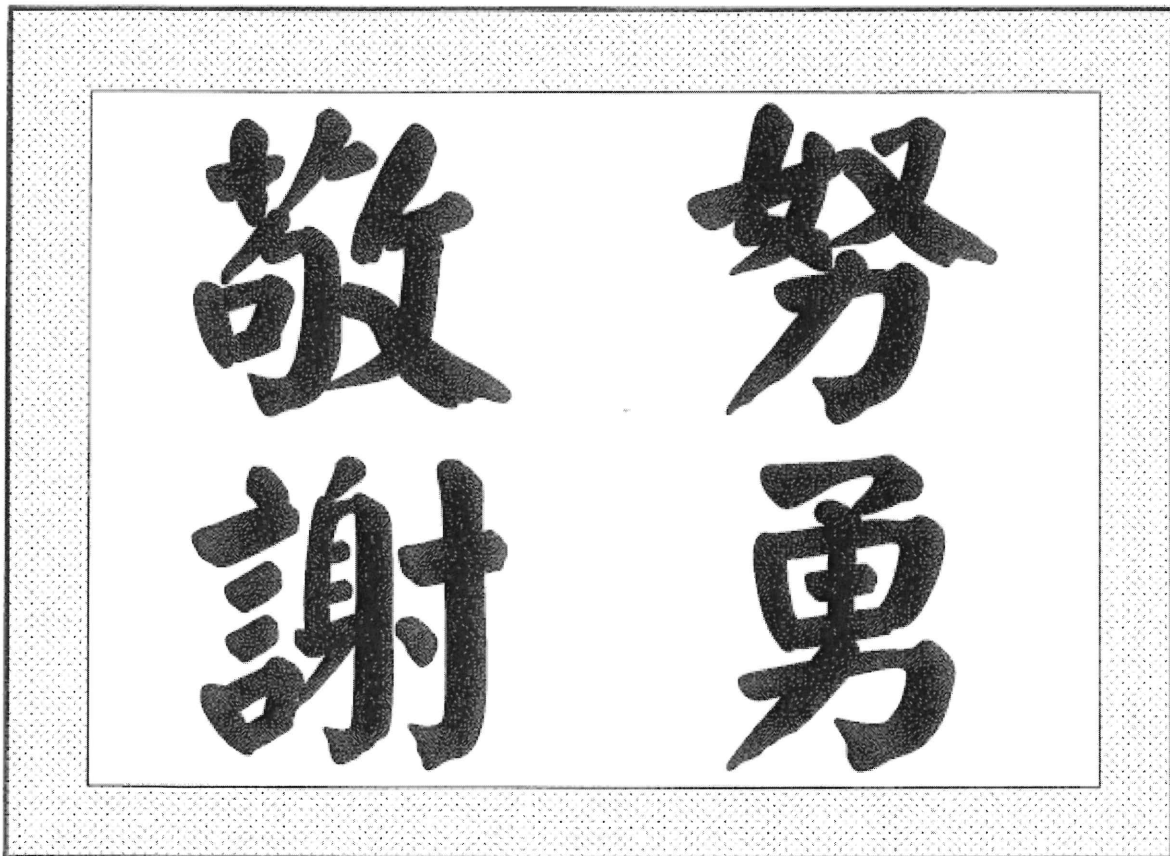 努勇
敬謝